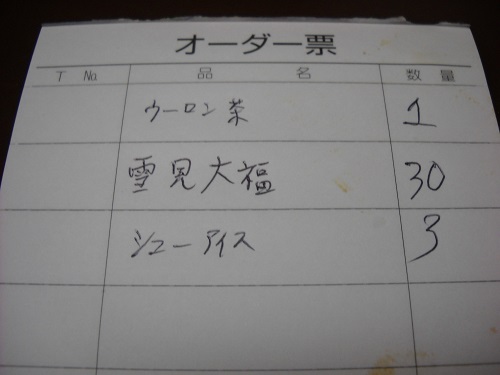 オーダー票
T No. 品名 数量
ウーロン茶 1
雪見大福 30
シューアイス 3